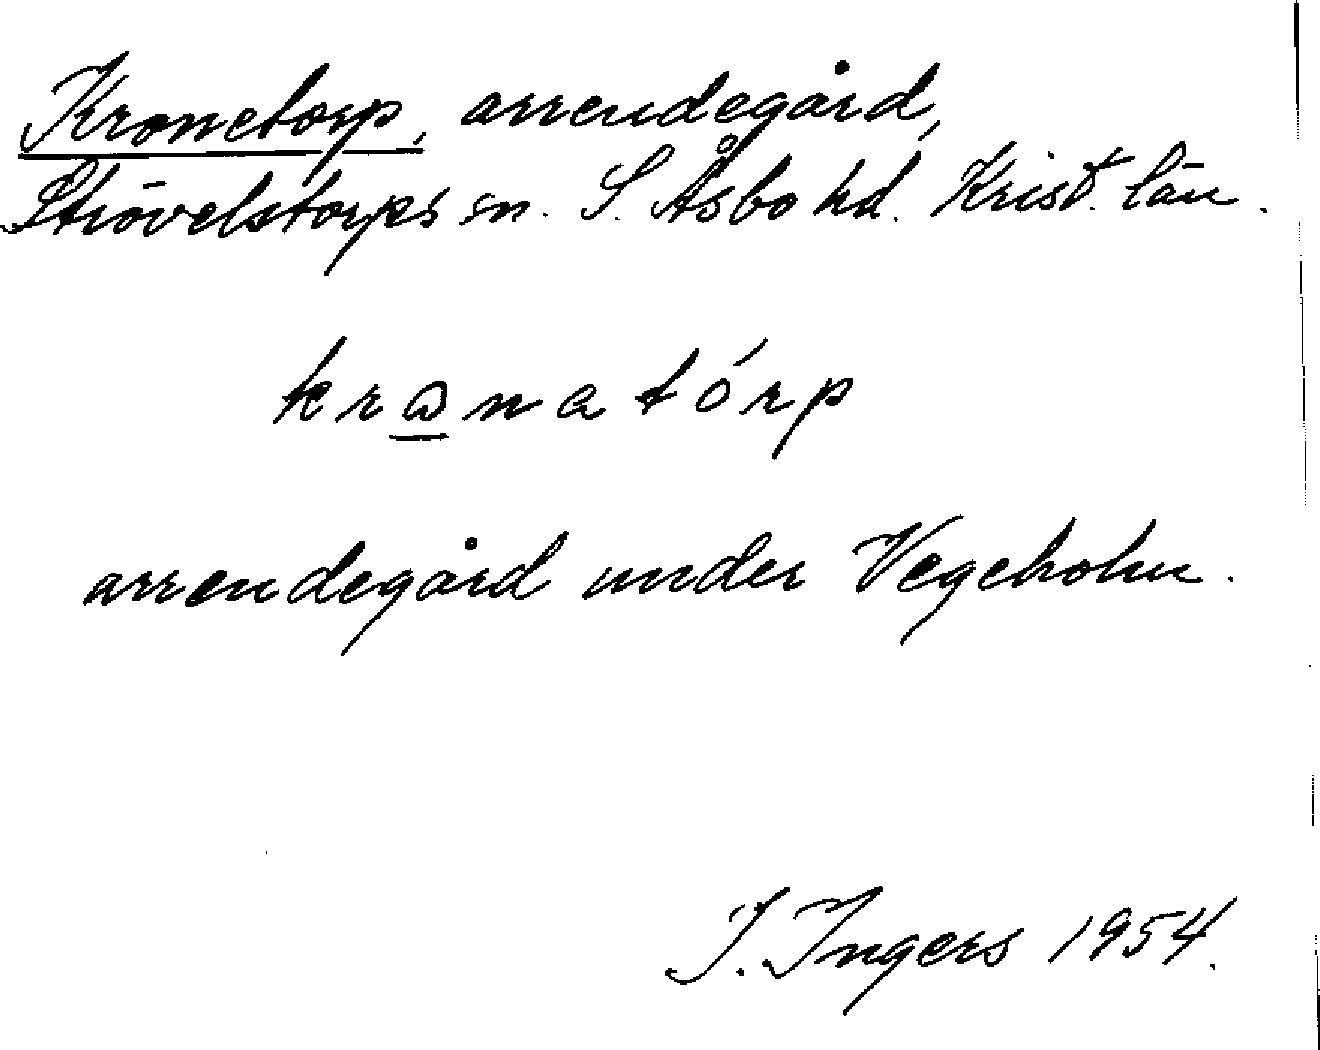 Kronetorp, arrendegård,
Strövelstorps sn. S. Åsbo hd. Krist. län.
krωnatórp
arrendegård under Vegeholm.
I. Ingers 1954.